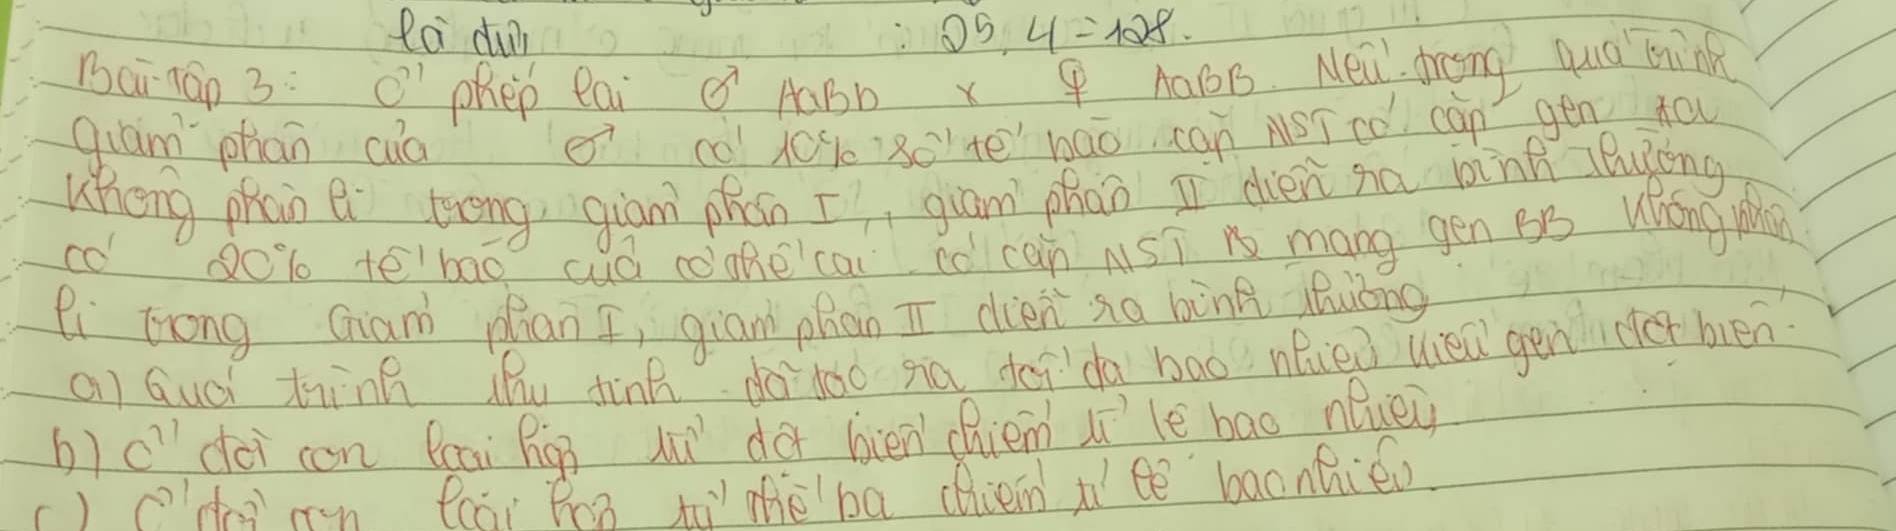 là dưới : 25.4=128.
Bài tập 3: Ở phép lai ♂ AaBb x ♀ AaBB. Nếu trong quá trình
giảm phân của ♂ có 10% số tế bào cặp NST có cặp gen Aa
không phân li trong giảm phân I, giảm phân II diễn ra bình thường
có 20% tế bào của cơ thể cái có cặp NST mang gen BB không phân
li trong Giảm phân I, giảm phân II diễn ra bình thường
a) Quá trình thụ tinh đã tạo ra tối đa bao nhiêu kiểu gen đột biến.
b) Ở đời con loại hợp tử đột biến chiếm tỉ lệ bao nhiêu
c) Ở đời con loại hợp tử thể ba chiếm tỉ lệ bao nhiêu.